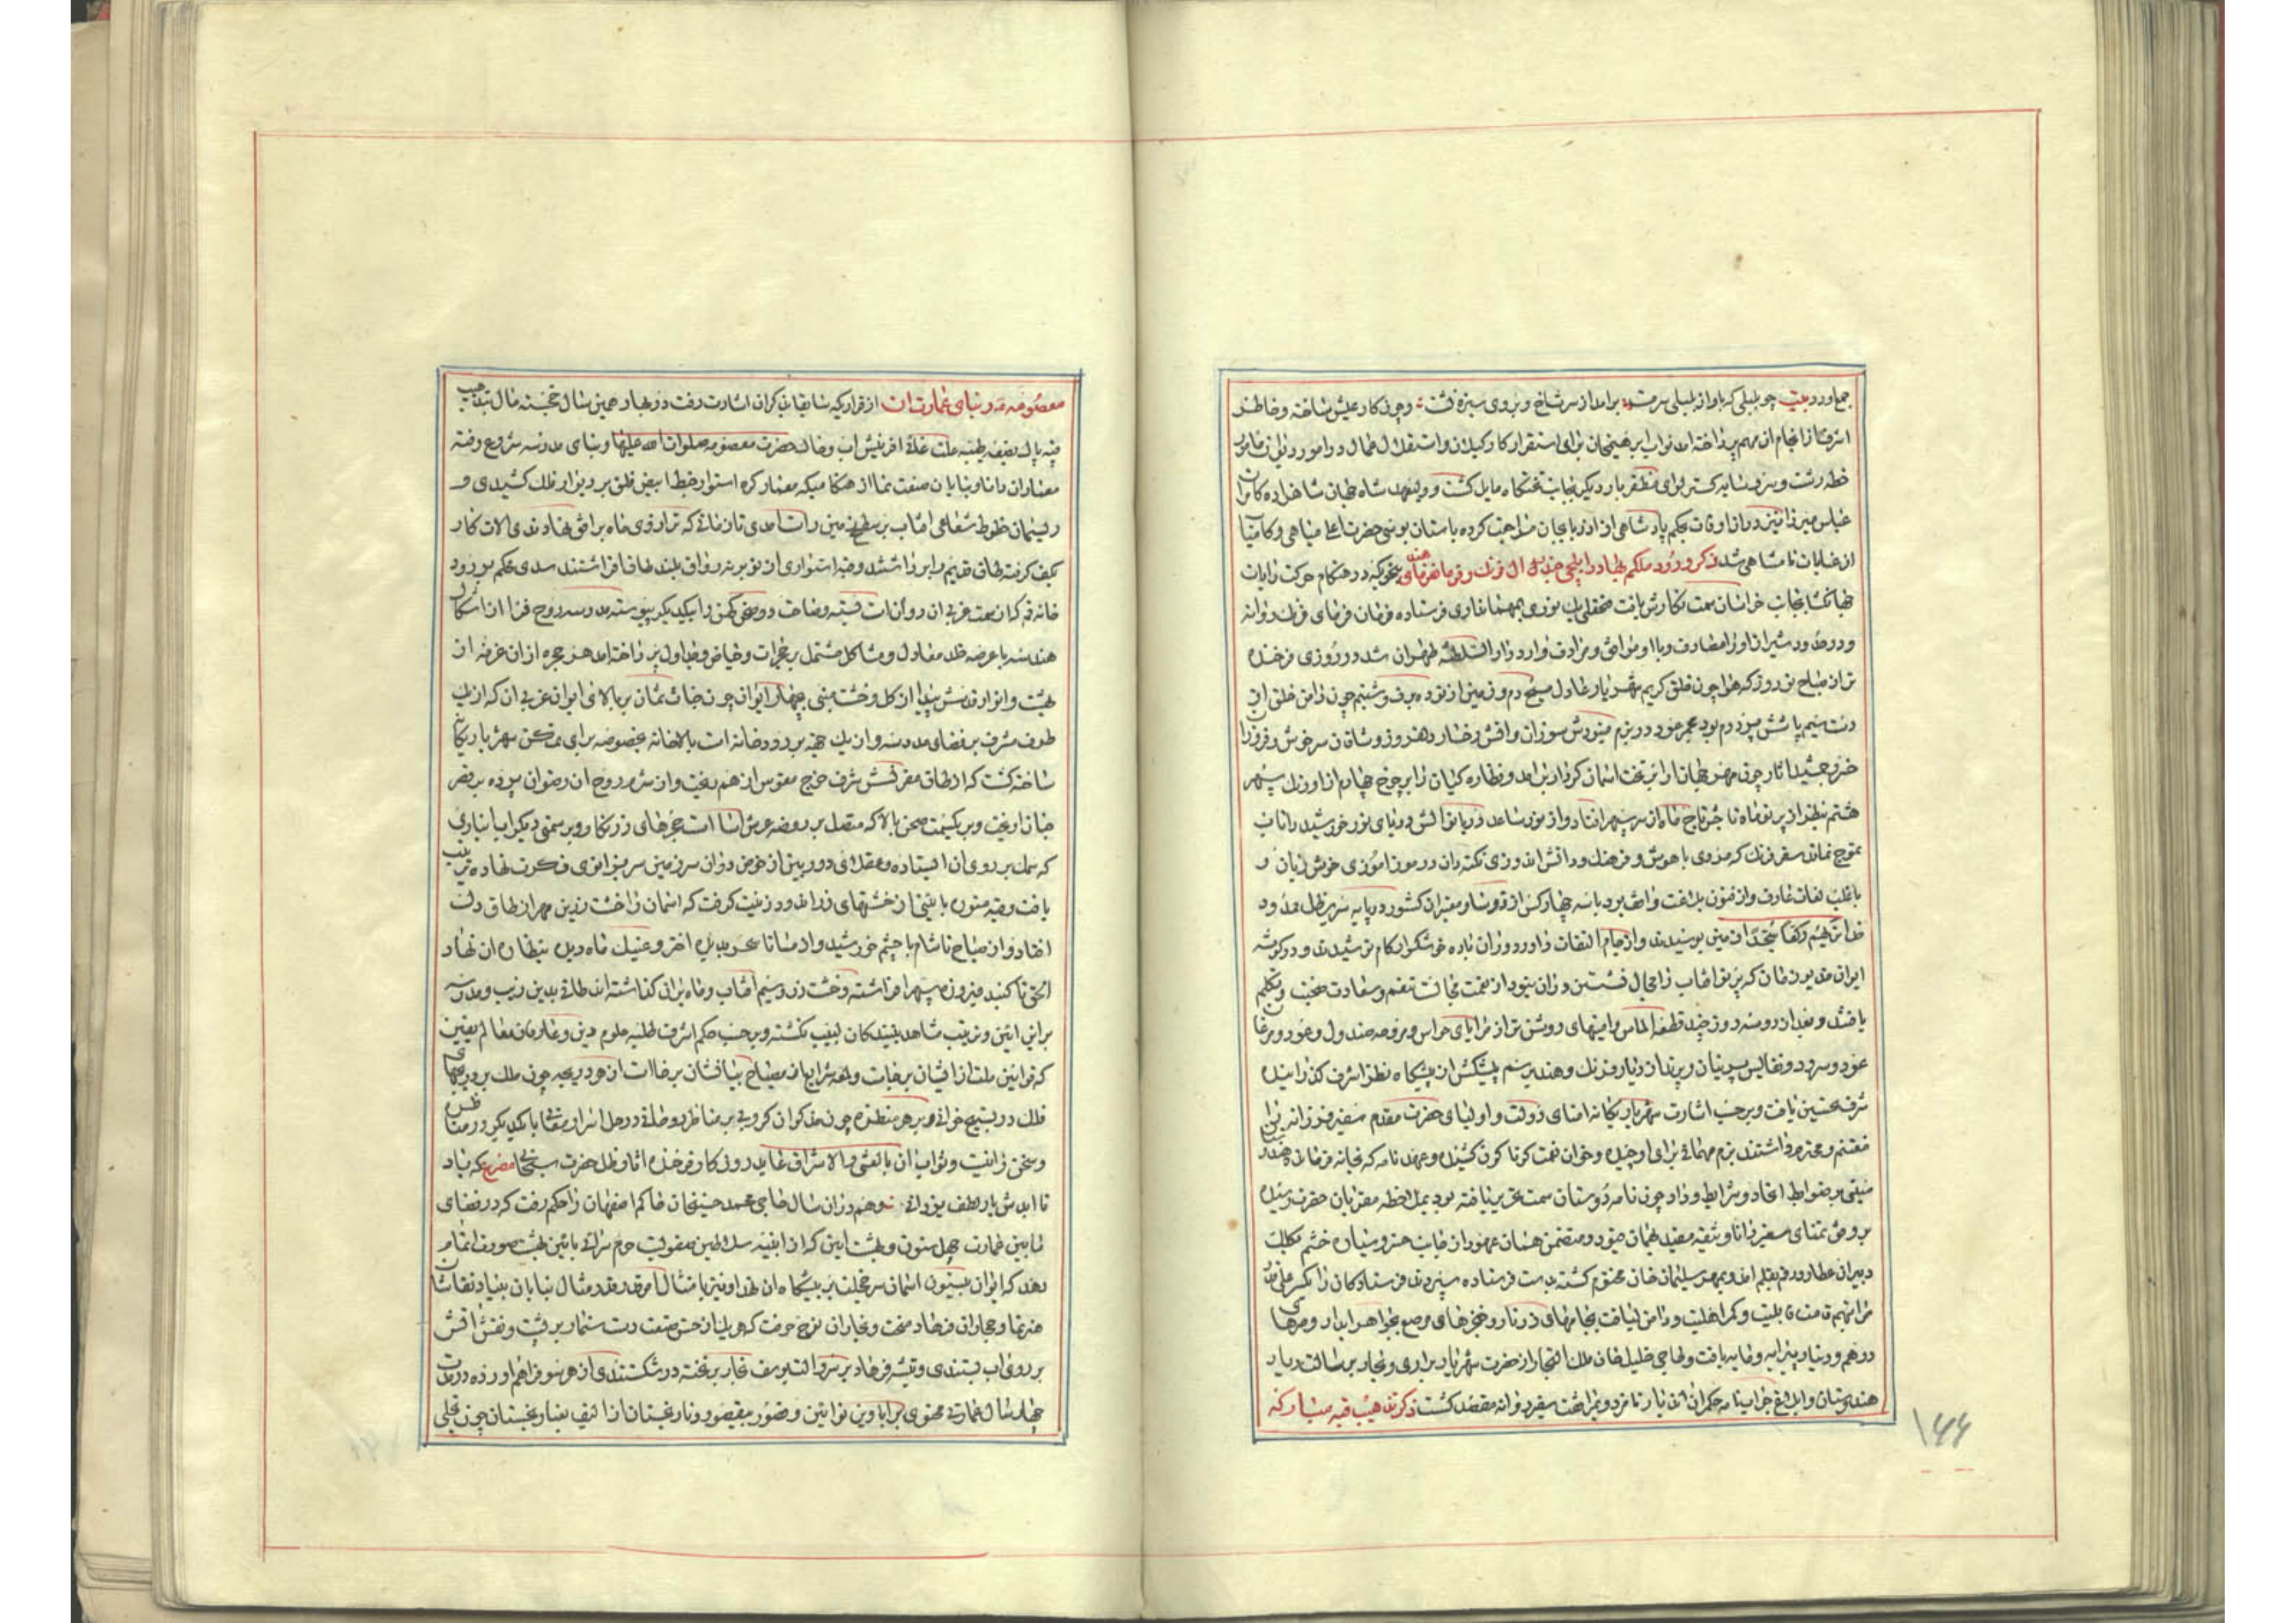 جمع آورد بیت چو بلبلی که باواز بلبلی سرمست برآمد از سر شاخ و بروی سبزه نشست وچون کار عیش ساخته و خاطر
اشرف از انجام آن مهم پرداخته آمد نواب ابرهیمخان برای استقرار کار کیلان و استقلال عمال در امور دیوانی مامور
خطه رشت و سرف سایه کستر لوای مظفر بار دیکر بجانب تختکاه مایل کشت و ولیعهد شاه جهان شاهزاده کامران
عباس میرزا نیز در آن اوقات بحکم پادشاهی از اذربایجان مراجعت کرده باستان بوسی حضرت اعلی مباهی و کامیاب
از عنایات نامتناهی شد ذکر ورود ملکم بهادر ایلچی جنرال فرنک و فرمانفرمای هند بنحویکه در هنکام حرکت رایات
جهانکشا بجانب خراسان سمت نکارش یافت فتحعلی بیک نوری بمهمانداری فرستاده فرمان فرمای فرنک روانه
و در حدود شیراز او را مصادف و با او موافق و مرادف وارد دار السلطنه طهران شد در روزی فرخنده
تر از صباح نوروز که هوا چون خلق کریم شهریار عادل مسیح دم و زمین از توده برف و شبنم چون دامن خلق از
دست سیم پاشش پر درم بود مجمر عود در بزم مینوش سوزان و آتش رخسار دهنروز وشاقان سرخوش و فروزان
خسرو جمشید آثار چون مهر جهانتاب بر تخت آسمان کردار برآمد و نظاره کیان را بر چرخ چهارم از اورنک سپهر
هشتم نظر از پرتو ماه تا جش تاج ماه از سر سپهر افتاد و از نور ساعد دریا نوالش دریای نور خورشید را تاب
بتوج نماند سفیر فرنک که مردی با هوش و فرهنک و دانش اندوزی نکته دان در رموز آموزی خوش زبان و
با غلب لغات عارف و از فنون بلاغت واقف بود با سه چهار کس از قدوسا و معتبران کشور در پایه سریر ظل ممدود
خدا تریهم رکعا سجدا زمین بوسیدند و از جام التفات داور دوران باده خوشکوار کام نوشیدند و در کوشه
ایران مدیون زمان که پرتو آفتاب را مجال نشستن در آن نبود از نعمت مجالست متنعم و سعادت صحبت و تکلم
یافتند و بعد از دو سه روز چند قطعه الماس و آینهای روشن تر از مرایای حواس و مروحه صندل و عود و مرغا
عود و سرود و نفایس پرنیان و پرند از دیار فرنک و هند برسم پیشکش از پیشکاه نظر اشرف کذرانیده
شرف تحسین یافت و بر حسب اشارت شهریار یکانه امنای دولت و اولیای حضرت مقدم سفیر فرزانه را
مغتنم و محترم داشتند بزم مهمانی برای او چیده و خوان نعمت کوناکون کشیده و عهد نامه که بجانه فرمانده هند
مبنی بر ضوابط اتحاد و شرایط وداد چون نامه دوستان سمت تحریر یافته بود بملاحظه مقربان حضرت رسیده
بر وفق تمنای سفیر دانا وثیقه مفید همان عقود و متضمن همان عهود از جانب خسرو ستاره خشم بکلک
دبیران عطارد رقم بقلم آمد و بمهر سلیمان خان مختوم کشته بدست فرستاده سپردند فرستادکان را بکسر علی قدر
مراتبهم قامت قابلیت و کمر اهلیت و دامن لیاقت بجامهای زرتار و خنجرهای مرصع بجواهر ابدار و صرهای
درهم و دینار پیرایه و مایه یافت و حاجی خلیل خان ملک التجار از حضرت شهریار برابری و تجار برسالت دیار
هندوستان و ابلاغ جواب نامه حکمران آن دیار نامزد و بمرافقت سفیر روانه مقصد کشت ذکر تذهیب قبه مبارکه
۱۴۴
معصومه قم و بنای عمارت آن از قراریکه سابقا بذکر آن اشارت رفت در بهار همین سال خجسته مال تذهیب
قبه پاک بضعه طیبه علت غائی آفرینش آب و خاک حضرت معصومه صلوات الله علیها و بنای مدرسه شروع رفته
معماران دانا و بنایان صنعت نما از هنکامیکه معمار کره استوار خط ابیض فلق بر دیوار فلک کشیدی و
ریسمان خطوط شعاعی آفتاب بر سطح زمین راست آمدی تا زمانی که ترازوی ماه بر افق نهادندی الات کار
بکف کرفته طاق قدیم را برداشتند و قبه استواری از نو بر نه رواق بلند طاق افراشتند سدی محکم بر رود
خانه قم که از سمت غربی آن روان است بسته و مضافت دو صحن کهن را بیکدیکر پیوسته مدرسه روح فزا از اشکال
هندسه با عرصه خلد معادل و مشاکل مشتمل بر حجرات و حیاض و جداول پرداخته آمد هر حجره از آن غرفه از
بهشت و انوار قدسش پیدا از کل و خشت مبنی بچهار ایوان چون جنات ثمان بر بالای ایوان غربی آن که از یک
طرف مشرف بر فضای مدرسه و از یک جهة بر رودخانه است بالاخانه مخصوصه برای تمکن شهریار یکتا
ساخته کشت که از طاق مقرنسش شرف خرج مقوس از هم ریخت و از شرم روح آن رضوان پرده بر قصر
جنان آویخت و بر یکسمت صحن بالا که متصل بر روضه عرش آسا است حجرهای زرنکار و بر سمتی دیکر آب انباری
که سمک بر روی آن ایستاده و عقل ای دوربین از غوص در آن سر زمین سر بر زانوی فکرت نهاده ترتیب
یافت و قبه منوره بآیینی از خشتهای زر اندود زینت کرفت که آسمان را خشت زرین مهر از طاق دل
افتاد و از صباح تا شام با چشم خورشید و از مسا تا سحر بدیده اختر و عینک ماه دیده بنظاره آن نهاد
الحق تا کنبد فیروزه سپهر افراشته و خشت زر و سیم آفتاب و ماه بر آن کذاشته اند طاقی بدین زیب و مدرسه
براین ائین و ترتیب مشاهد بینندکان لبیب نکشته و بر حسب حکم اشرف طلبه علوم دین و عارفان معالم یقین
که قوانین ملت از اقیان برجاست و لمعه شرایع از مصباح بیانشان برخاست از هر دریچه چون ملک بر دریچهای
فلک در تسبیح خوانی و بر هر منظره چون مذکوران کروبی بر مناظر روحانی در حل اسرار معانی با یکدیکر در مناظره
و سخن رانیت و ثواب آن بالعشی و الاشراق عاید روزکار فرخنده آثار ظل حضرت سبحان مصرع که باد
تا ابدش یار لطف یزدانی وهم در آن سال حاجی محمد حسینخان حاکم اصفهان را حکم رفت که در فضای
مابین عمارت چهل ستون و هشت بهشت که از ابنیه سلاطین صفویست حرم سرائی بآئین بهشت صورت اتمام
دهد که ایوان بیستون آسمان سر خجلت بر پیشکاه آن نهد او نیز بامتثال امر قدر قدر مثال بنایان بهیاد نقاشان
هنرنما و حجاران فرهاد محنت و نجاران نوح حرفت که هریک از حسن صنعت دست سنمار بر پشت و نقش آتش
بر روی آب بستندی و تیشه فرهاد بر سر و الت یوسف نجار بر تخته در شکستندی از هر سو فراهم آورده در مدت
چهار سال عمارتی محتوی برایاوین نوآیین و حضور بمقصور و نارنجستان ازالیف بهار نجستان چون تجلی